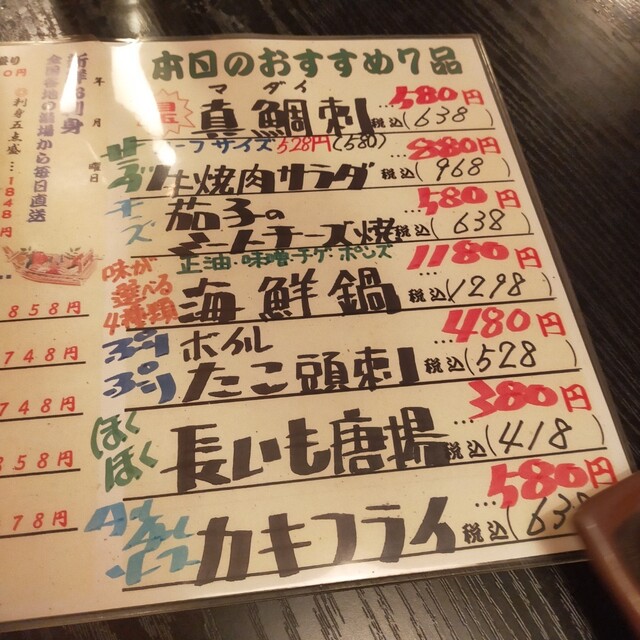 本日のおすすめ7品
マダイ
真鯛刺 …580円
税込(638)
ハーフサイズ528円(580)
サラダ 牛焼肉サラダ …880円
税込(968)
チーズ 茄子の
ミートチーズ焼 …580円
税込(638)
正油・味噌・チゲ・ポンズ
味が
選べる
4種類 海鮮鍋 …1180円
税込(1298)
ぷりぷり ボイル
たこ頭刺 …480円
税込(528)
ほくほく 長いも唐揚 …380円
税込(418)
カキフライ …580円
税込(638
年 月 曜日
全国各地の漁場から毎日直送
刺身五点盛…1848円
858円
748円
748円
858円
78円